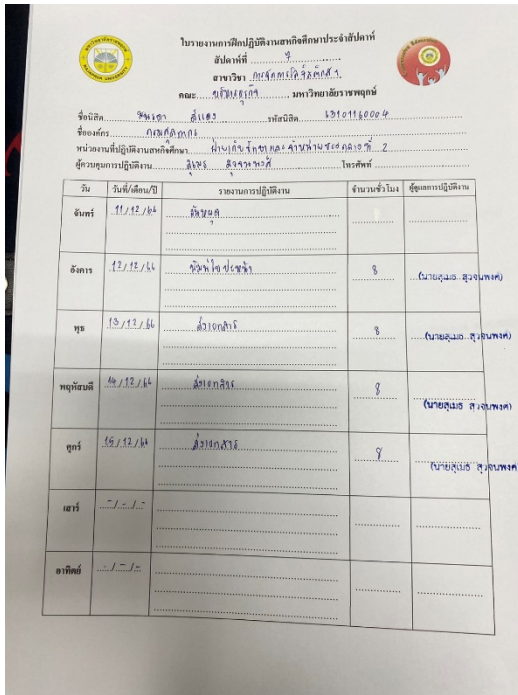 ใบรายงานการฝึกปฏิบัติงานสหกิจศึกษาประจำสัปดาห์
สัปดาห์ที่ 7
สาขาวิชา การจัดการโลจิสติกส์ฯ
คณะ บริหารธุรกิจ มหาวิทยาลัยราชพฤกษ์
ชื่อนิสิต รหัสนิสิต 63101160004
ชื่อองค์กร กรมศุลกากร
หน่วยงานที่ปฏิบัติงานสหกิจศึกษา ฝ่ายเก็บรักษาและจำหน่ายของกลางที่ 2
ผู้ควบคุมการปฏิบัติงาน สุเมธ สุวจนพงศ์ โทรศัพท์
วัน วันที่/เดือน/ปี รายงานการปฏิบัติงาน จำนวนชั่วโมง ผู้ดูแลการปฏิบัติงาน
จันทร์ 11/12/66 วันหยุด
อังคาร 12/12/66 พิมพ์ใบปะหน้า 8 (นายสุเมธ สุวจนพงศ์)
พุธ 13/12/66 ส่งเอกสาร 8 (นายสุเมธ สุวจนพงศ์)
พฤหัสบดี 14/12/66 ส่งเอกสาร 8 (นายสุเมธ สุวจนพงศ์)
ศุกร์ 15/12/66 ส่งเอกสาร 8 (นายสุเมธ สุวจนพงศ์)
เสาร์ -/-/-
อาทิตย์ -/-/-